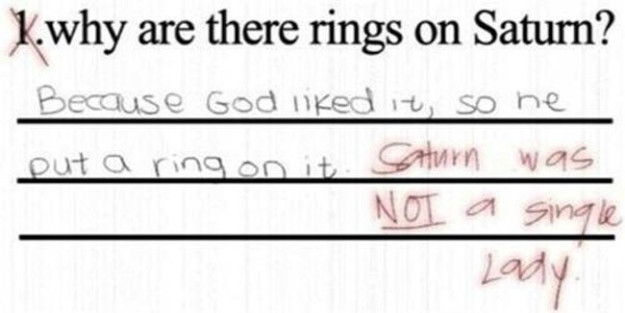 1.why are there rings on Saturn?
Because God liked it, so he
put a ring on it. Saturn was
NOT a single
Lady.